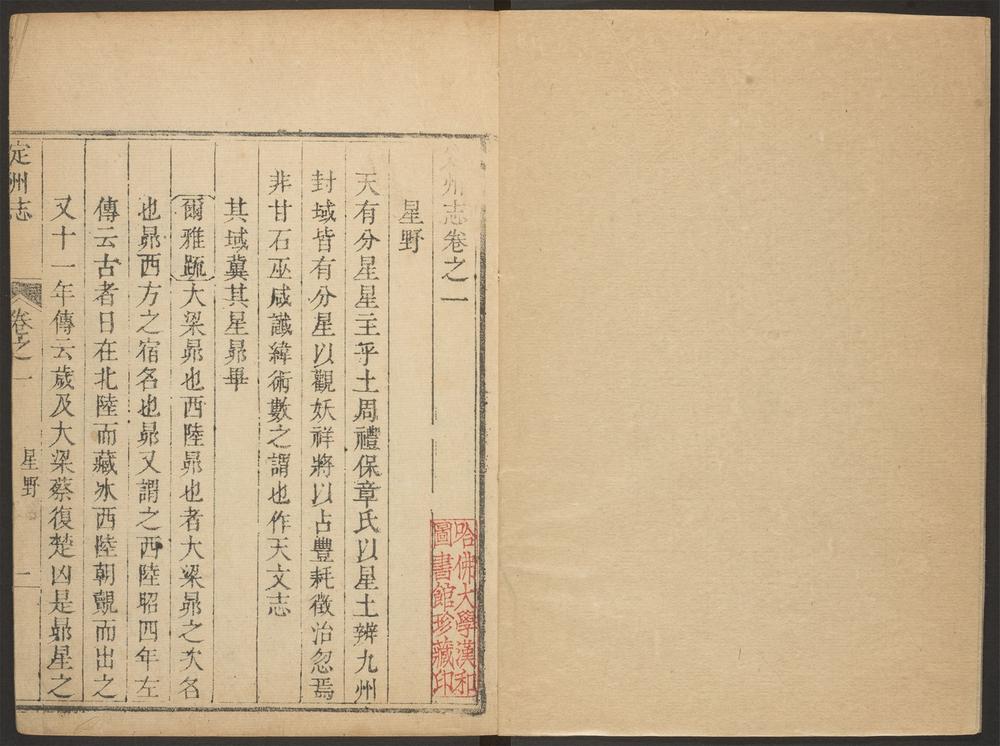 州志卷之一
星野
天有分星星主乎土周禮保章氏以星土辨九州
封域皆有分星以觀妖祥將以占豐耗徵治忽焉
非甘石巫咸讖緯術數之謂也作天文志
其域冀其星昴畢
爾雅䟽大梁昴也西陸昴也者大梁昴之次名
也昴西方之宿名也昴又謂之西陸昭四年左
傳云古者日在北陸而藏冰西陸朝覿而出之
又十一年傳云歲及大梁蔡復楚凶是昴星之
定州志
卷之一
星野
一
哈佛大學漢和
圖書館珍藏印